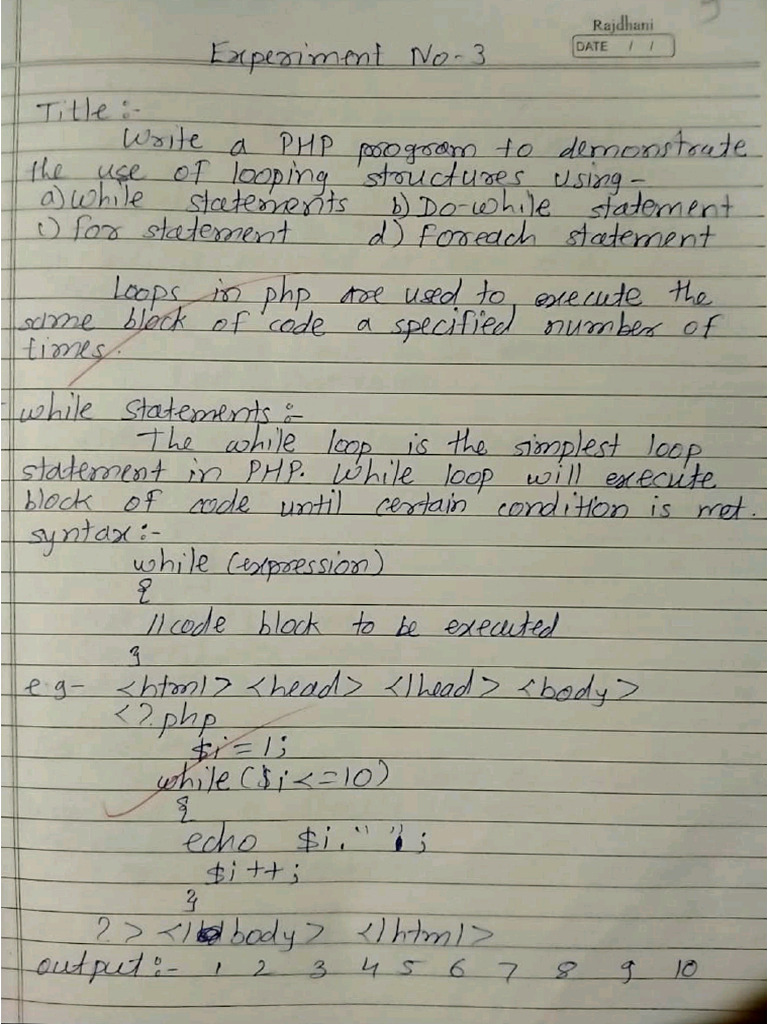 Rajdhani
DATE / /
Experiment No-3
Title :-
Write a PHP program to demonstrate
the use of looping structures using-
a) while statements b) Do-while statement
c) for statement d) Foreach statement
Loops in php are used to execute the
same block of code a specified number of
times.
while Statements :-
The while loop is the simplest loop
statement in PHP. While loop will execute
block of code until certain condition is met.
syntax:-
while (expression)
{
//code block to be executed
}
e.g- <html> <head> </head> <body>
<?php
$i=1;
while($i<=10)
{
echo $i." ";
$i++;
}
?> </body> </html>
output:- 1 2 3 4 5 6 7 8 9 10